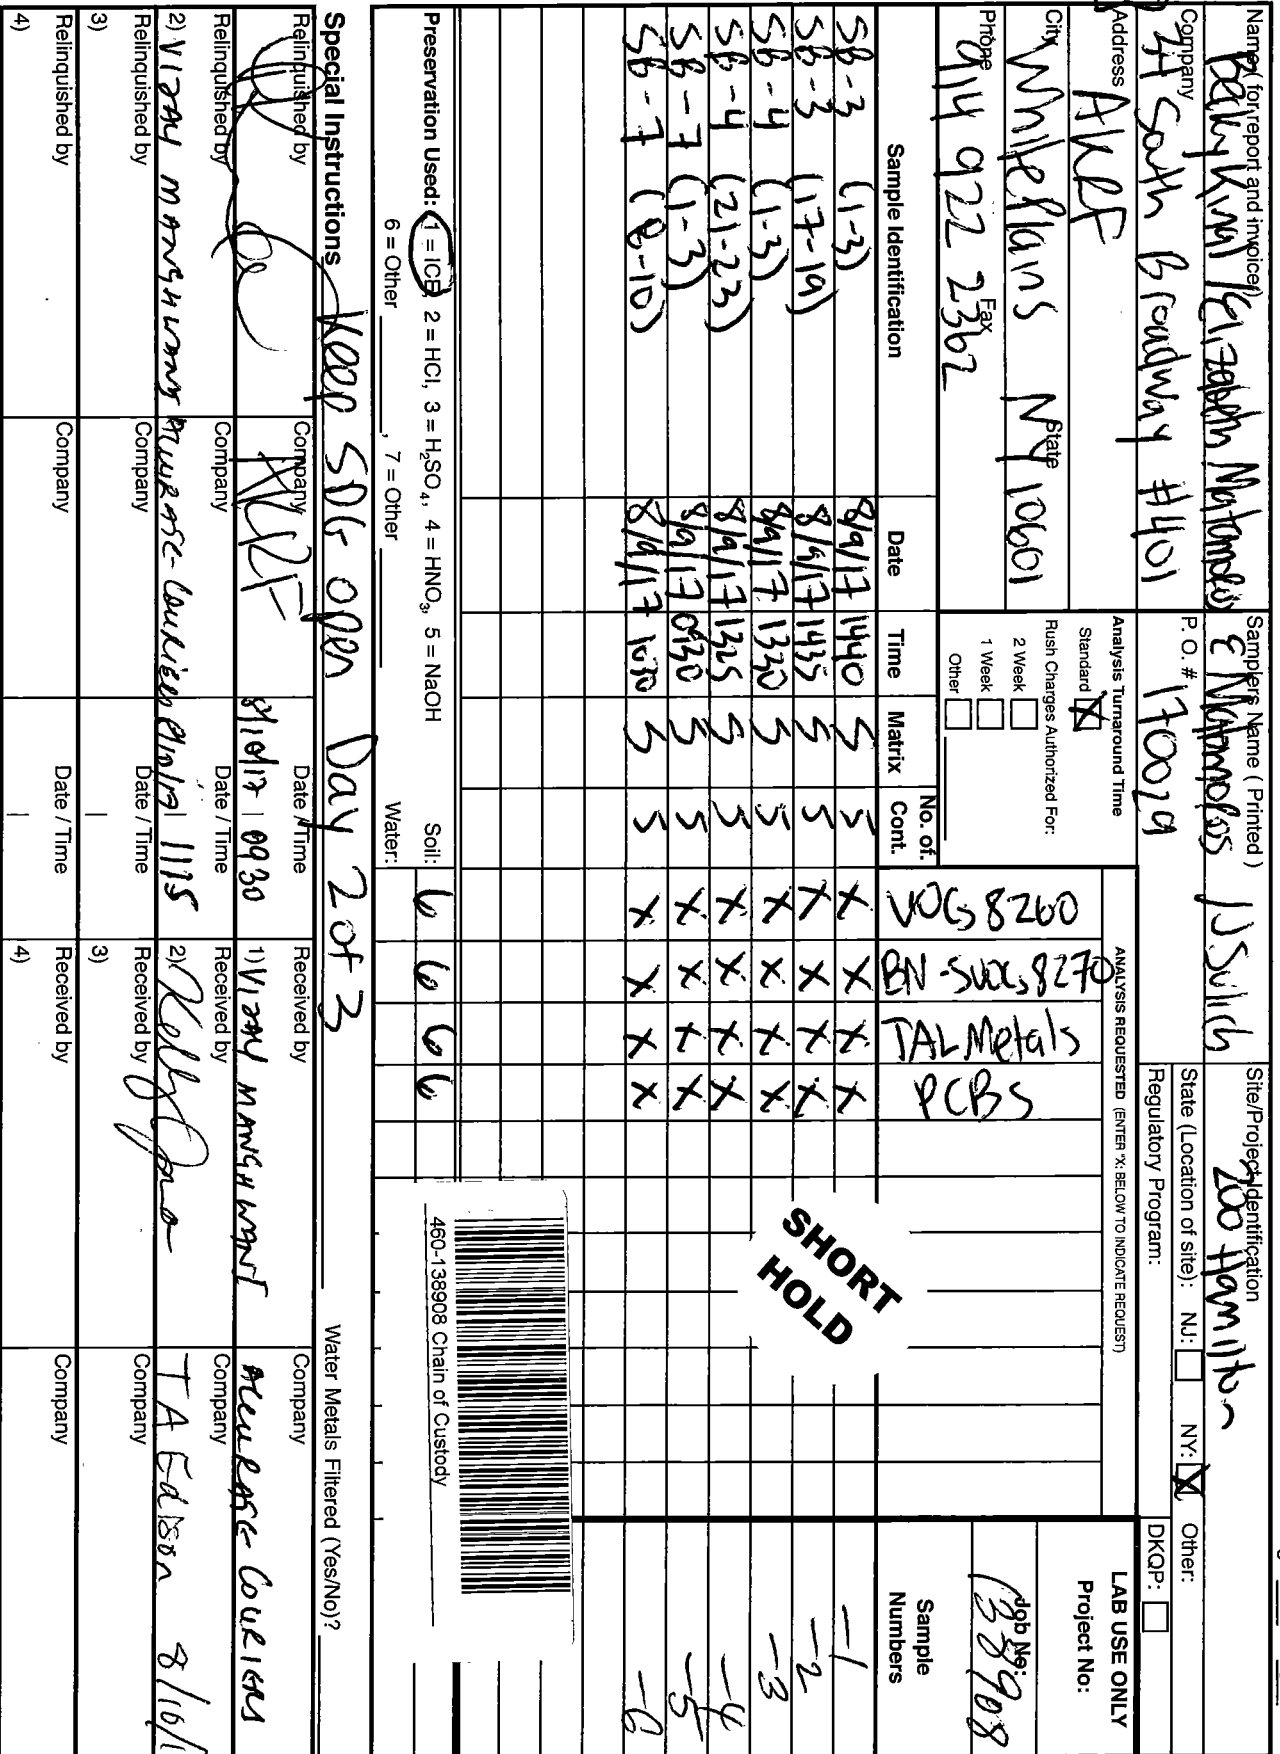 Name (for report and invoice) Becky Kinal / Elizabeth Matamoros
Samplers Name ( Printed ) E Matamoros N Sulich
Site/Project Identification 200 Hamilton
Company 34 South Broadway #401
P. O. # 170029
State (Location of site): NJ: NY: X Other:
Regulatory Program: DKQP:
Address AKRF
Analysis Turnaround Time
Standard X
Rush Charges Authorized For:
2 Week
1 Week
Other
ANALYSIS REQUESTED (ENTER "X: BELOW TO INDICATE REQUEST)
LAB USE ONLY
Project No:
City White Plains State NY 10601
Phone 914 922 2362 Fax
Job No: 138908
Sample Identification Date Time Matrix No. of. Cont. VOCs 8260 BN-SVOCs 8270 TAL Metals PCBs Sample Numbers
SB-3 (1-3) 8/9/17 1440 S 5 X X X X -1
SB-3 (17-19) 8/9/17 1435 S 5 X X X X -2
SB-4 (1-3) 8/9/17 1330 S 5 X X X X -3
SB-4 (21-23) 8/9/17 1325 S 5 X X X X -4
SB-7 (1-3) 8/9/17 0930 S 5 X X X X -5
SB-7 (8-10) 8/9/17 1030 S 5 X X X X -6
SHORT
HOLD
460-138908 Chain of Custody
Preservation Used: 1 = ICE, 2 = HCl, 3 = H₂SO₄, 4 = HNO₃, 5 = NaOH Soil: 6 6 6 6
6 = Other , 7 = Other Water:
Special Instructions Keep SDG open Day 2 of 3 Water Metals Filtered (Yes/No)?
Relinquished by Company AKRF Date / Time 8/10/17 | 0930 Received by 1) VIJAY MANGHWANI Company ACCURATE COURIERS
Relinquished by 2) VIJAY MANGHWANI Company ACCURATE-COURIERS Date / Time 8/10/17 | 1115 Received by 2) Company TA Edison 8/10/1
Relinquished by 3) Company Date / Time | Received by 3) Company
Relinquished by 4) Company Date / Time | Received by 4) Company